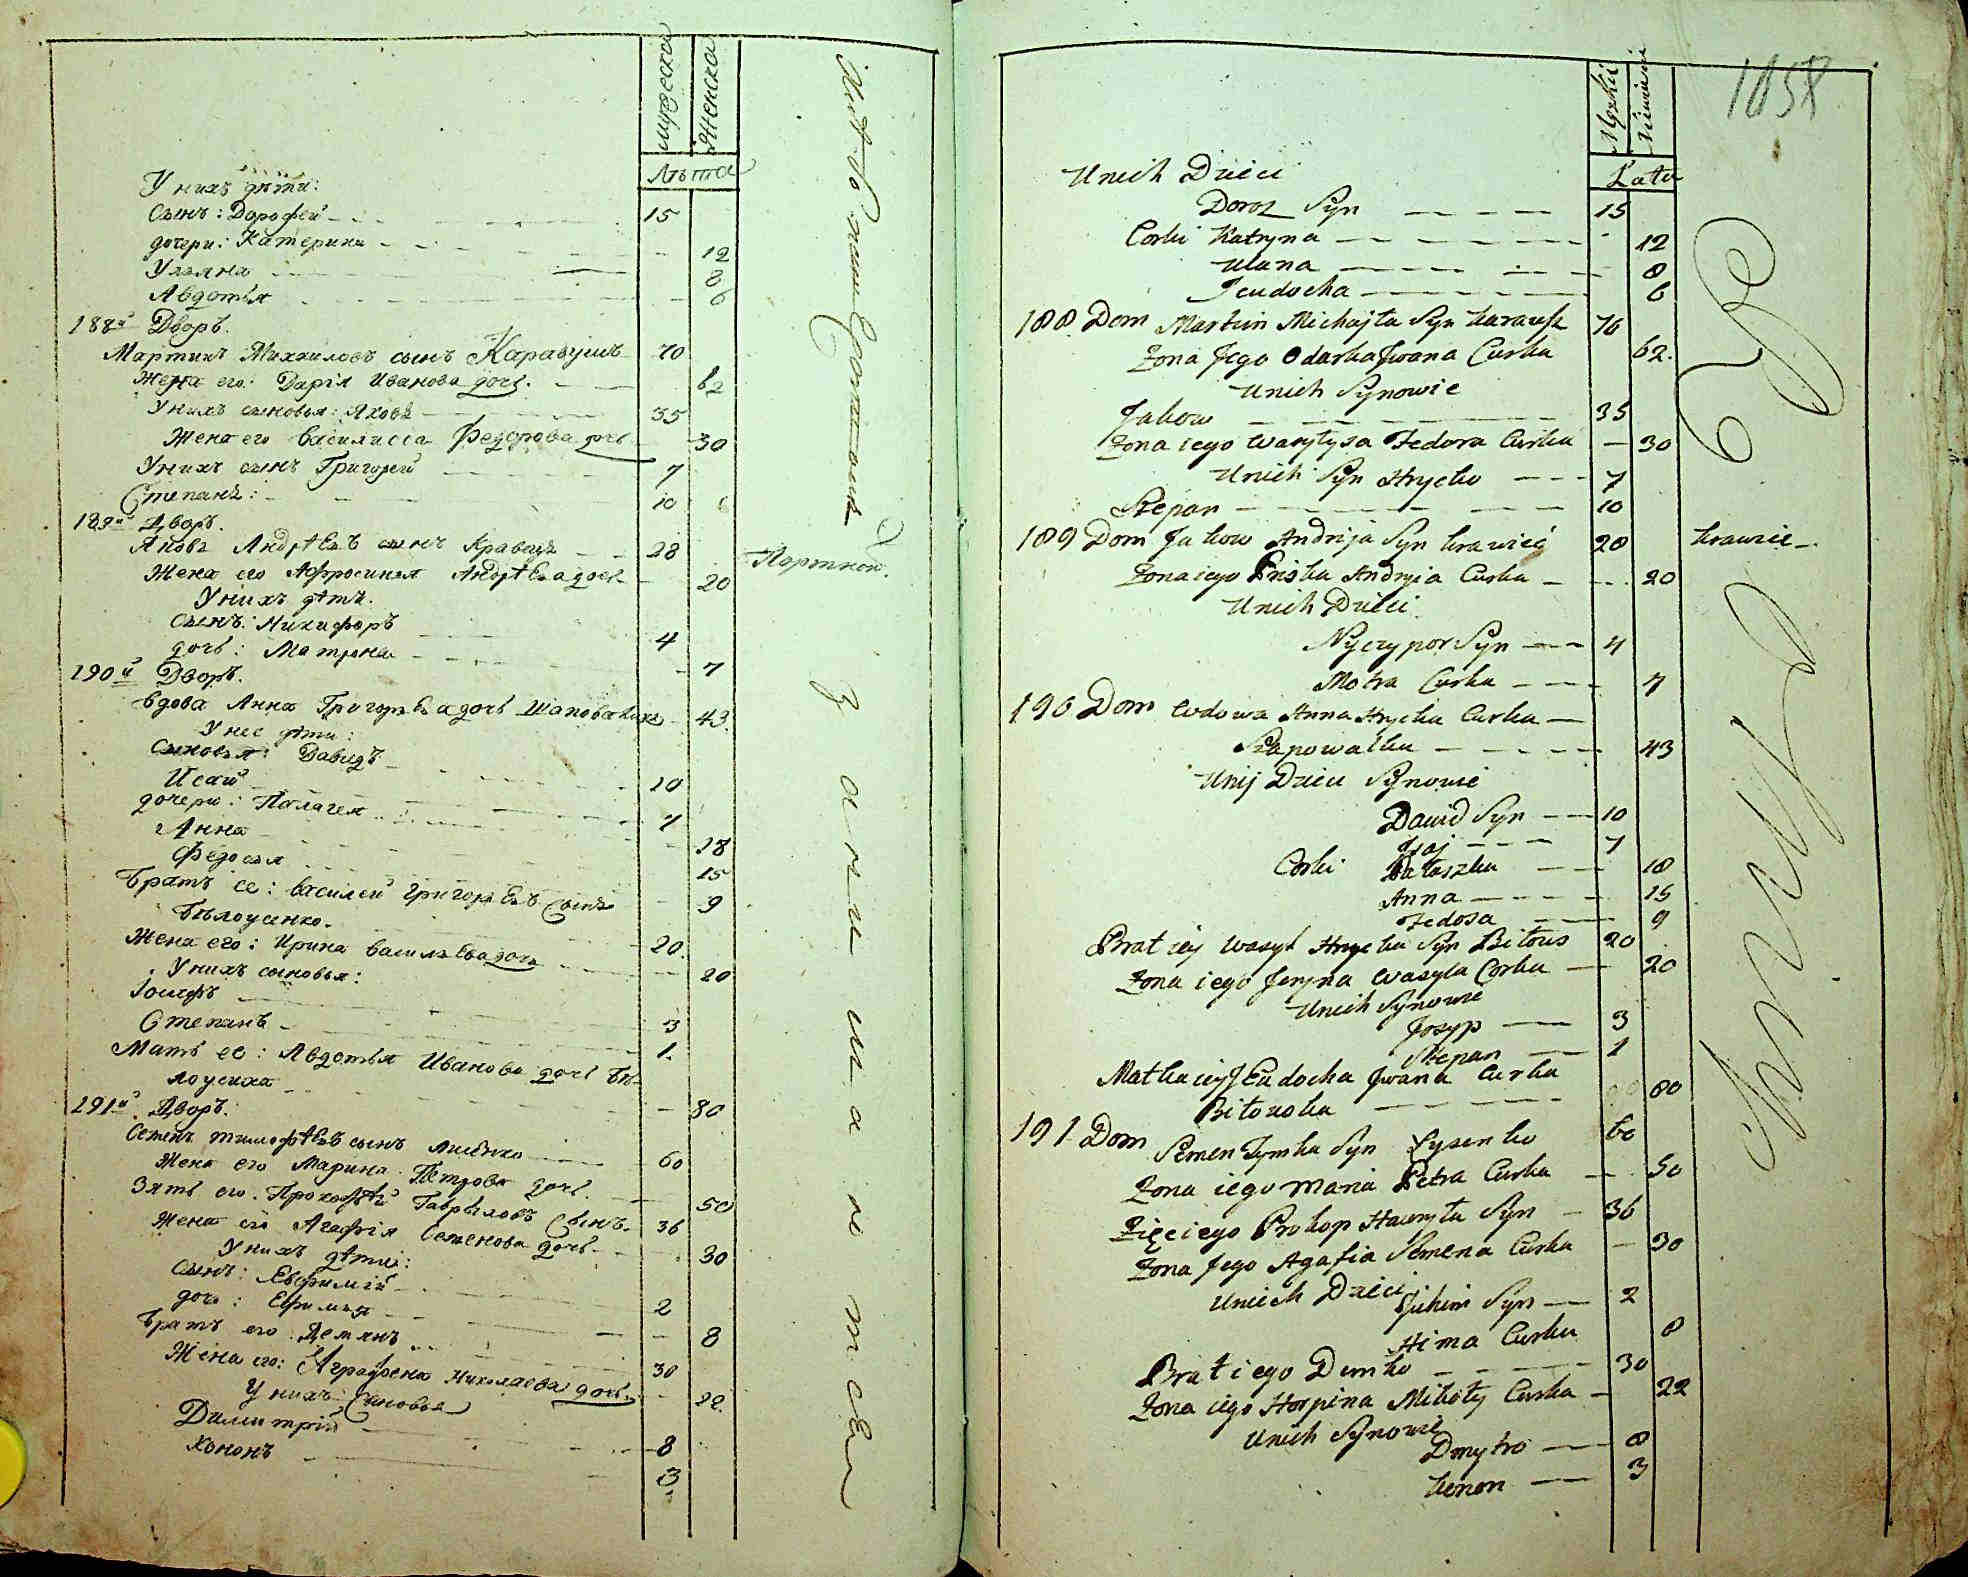 мужеска
Женска
Лѣта
У нихъ дѣти:
Сынъ: Дорофей 15
дочери: Катерина 12
Уляна 8
Авдотья 6
188й Дворъ.
Мартинъ Михаиловъ сынъ Карабушъ 70
Жена его: Дарія Иванова дочь. 62
У нихъ сыновья: Яковъ 35
Жена его Василисса Федорова дочь 30
У нихъ сынъ Григорей 7
Степанъ: 10
189й Дворъ.
Яковъ Андрѣевъ сынъ Кравецъ 28 Портной.
Жена его Афросинья Андрѣева дочь 20
У нихъ дѣти.
сынъ: Никифоръ 4
дочь: Матрона 7
190й Дворъ.
Вдова Анна Григорьева дочь Шаповалиха 43
У нее дѣти:
Сыновья: Давидъ 10
Исай 7
дочери: Палагея 18
Анна 15
Федосья 9
Братъ ее: Василей Григорьевъ сынъ
Бѣлоусенко. 20
Жена его: Ирина Васильева дочь 20
У нихъ сыновья:
Іосифъ 3
Степанъ 1
Мать ее: Авдотья Иванова дочь Бѣ-
лоусиха 80
191й Дворъ.
Семенъ Тимофѣевъ сынъ Лисенко 60
Жена его Марина Петрова дочь. 50
Зять его. Прокофѣй Гавриловъ сынъ. 36
Жена его Агафія Семенова дочь 30
У нихъ дѣти:
Сынъ: Евфимій 2
дочь: Ефимья 8
Братъ его Демянъ 30
Жена его: Аграфена Николаева дочь. 22
У нихъ: Сыновья
Димитрій 8
Кононъ 3
1058
Męzkii
Lata
Unich Dzieci
Dorosz Syn 15
Corki Katryna 12
Ulana 8
Jeudocha 6
188 Dom Martin Michajła Syn Karawsz 70
Zona Jego Odarka Jwana Curka 62.
Unich Synowie
Jakow 35
Zona iego Wasyłysa Fedora Curka 30
Unich Syn Hrycko 7
Stepan 10
189 Dom Jakow Andrija Syn Krawieć 28 Krawiec
Zona iego Priska Andryia Curka 20
Unich Dzieci
Nyczypor Syn 4
Motra Curka 7
190 Dom Wdowa Anna Hrycka Curka
Szapowałka 43
Unij Dzieci Synowie
Dawid Syn 10
Jsaj 7
Corki Pałaszka 18
Anna 15
Fedosa 9
Brat iey Wasyl Hrycka Syn Biłous 20
Zona iego Jeryna Wasyla Corka 20
Unich Synowie
Josyp 3
Stepan 1
Matka iey Jeudocha Jwana Curka
Biłouska 80
191 Dom Semen Tymka Syn Łysenko 60
Zona iego Maria Petra Curka 50
Zięć iego Prokop Hawryła Syn 36
Zona Jego Agafia Semena Curka 30
Unich Dzieci Juchim Syn 2
Hima Curka 8
Brat iego Demko 30
Zona iego Horpina Mikoły Curka 22
Unich Synowie
Dmytro 8
Konon 3